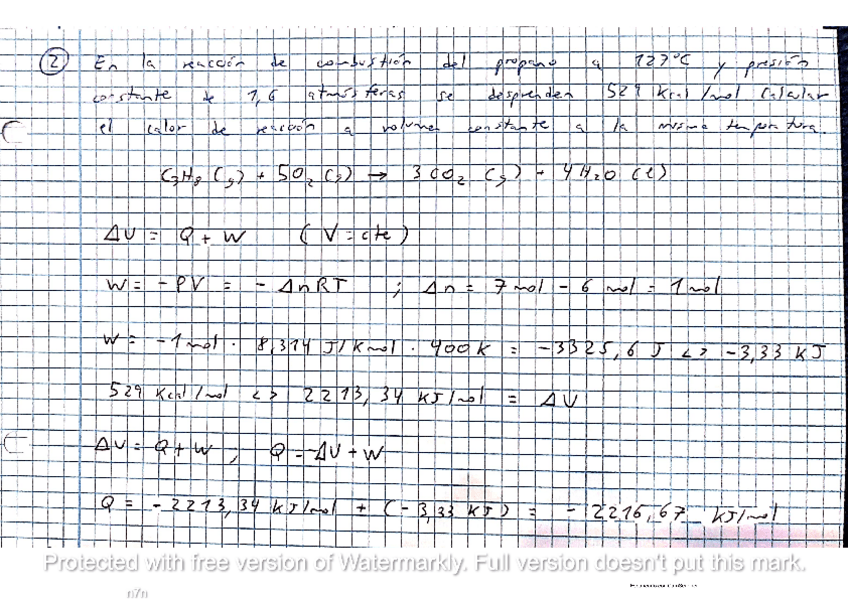 2 En la reacción de combustión del propano a 127°C y presión
constante de 1,6 atmósferas se desprenden 529 Kcal/mol Calcular
el calor de reacción a volumen constante a la misma temperatura.
C3H8 (g) + 5O2 (g) → 3CO2 (g) + 4H2O (l)
ΔU = Q + W (V = cte)
W = -PV = - ΔnRT ; Δn = 7 mol - 6 mol = 1 mol
W = -1 mol · 8,314 J/Kmol · 400 K = -3325,6 J <> -3,33 KJ
529 Kcal/mol <> 2213,34 KJ/mol = ΔU
ΔU = Q + W ; Q = -ΔU + W
Q = -2213,34 KJ/mol + (-3,33 KJ) = -2216,67 KJ/mol
Protected with free version of Watermarkly. Full version doesn't put this mark.
n7n